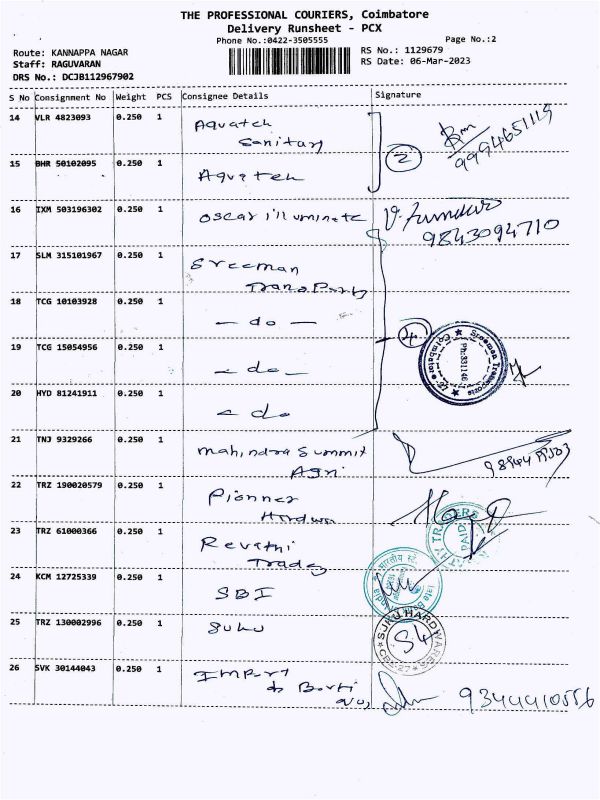 THE PROFESSIONAL COURIERS, Coimbatore
Delivery Runsheet - PCX
Phone No.:0422-3505555
Page No.:2
Route: KANNAPPA NAGAR
Staff: RAGUVARAN
DRS No.: DCJB112967902
RS No.: 1129679
RS Date: 06-Mar-2023
S No Consignment No Weight PCS Consignee Details Signature
14 VLR 4823093 0.250 1 Aquatech
Sanitary
9994651119
15 BHR 50102095 0.250 1 Aquatech
2
16 IXM 503196302 0.250 1 Oscar illuminate
9843094710
17 SLM 315101967 0.250 1 Sreeman
Transports
18 TCG 10103928 0.250 1 — do —
4
Sreeman Transports
Coimbatore - 27
Ph:331146
19 TCG 15054956 0.250 1 — do —
20 HYD 81241911 0.250 1 — do
21 TNJ 9329266 0.250 1 Mahindra Summit
Agri
22 TRZ 190020579 0.250 1 Pionner
Hardwa
23 TRZ 61000366 0.250 1 Revathi
Trades
PAID
24 KCM 12725339 0.250 1 SBI
25 TRZ 130002996 0.250 1 Suku
HARDWARES
CBE-27
26 SVK 30144043 0.250 1 Import
9344410556